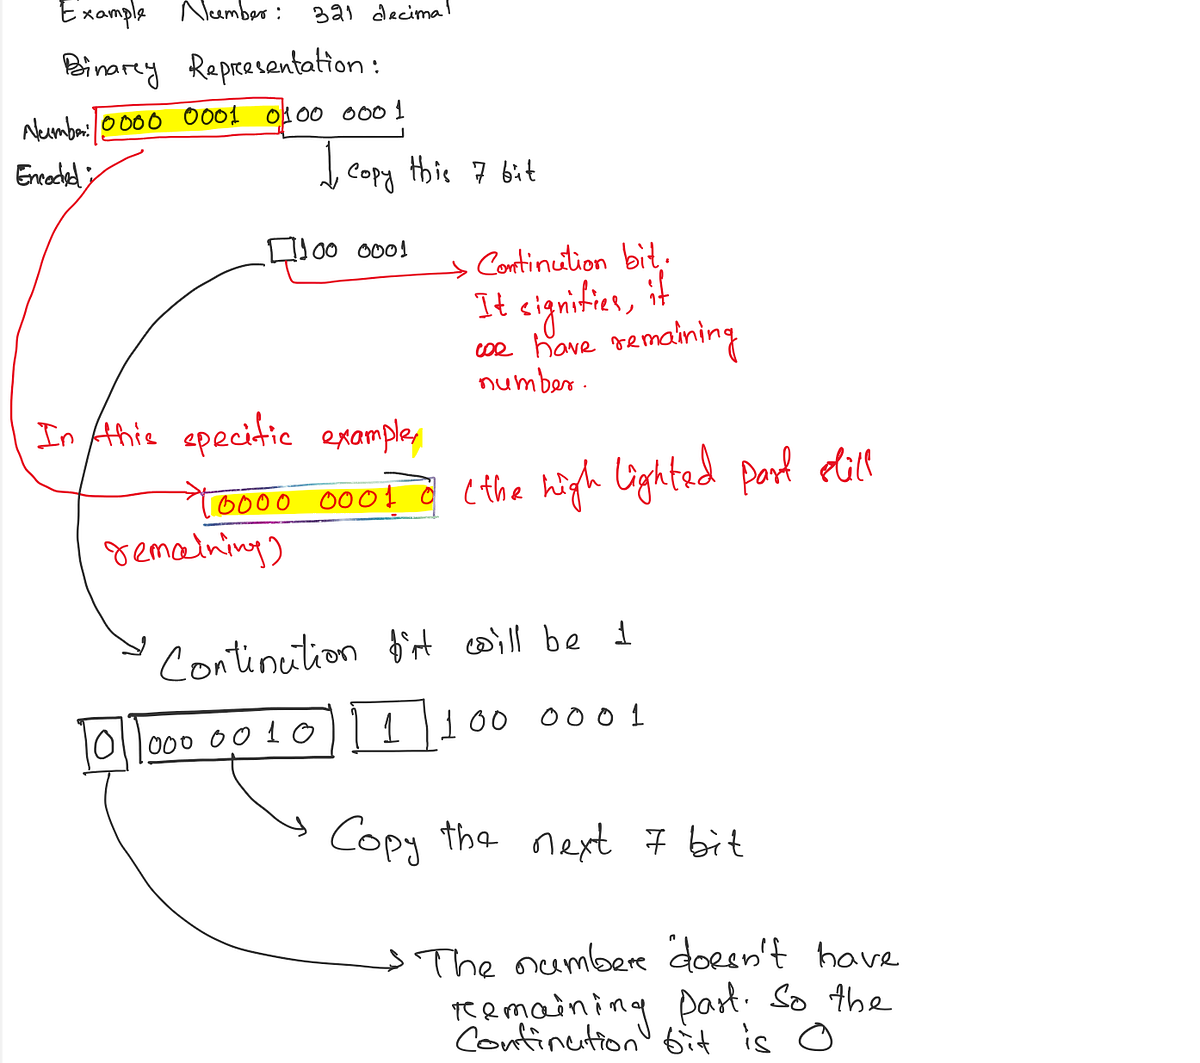 Example Number: 321 decimal
Binary Representation:
Number: 0000 0001 0100 0001
Encoded:
Copy this 7 bit
100 0001
Contination bit.
It signifies, if
we have remaining
number.
In this specific example,
(0000 0001 0 (the high lighted part still
remaining)
Contination bit will be 1
0 000 0010 1 100 0001
Copy the next 7 bit
The number doesn't have
remaining part. So the
Contination bit is 0